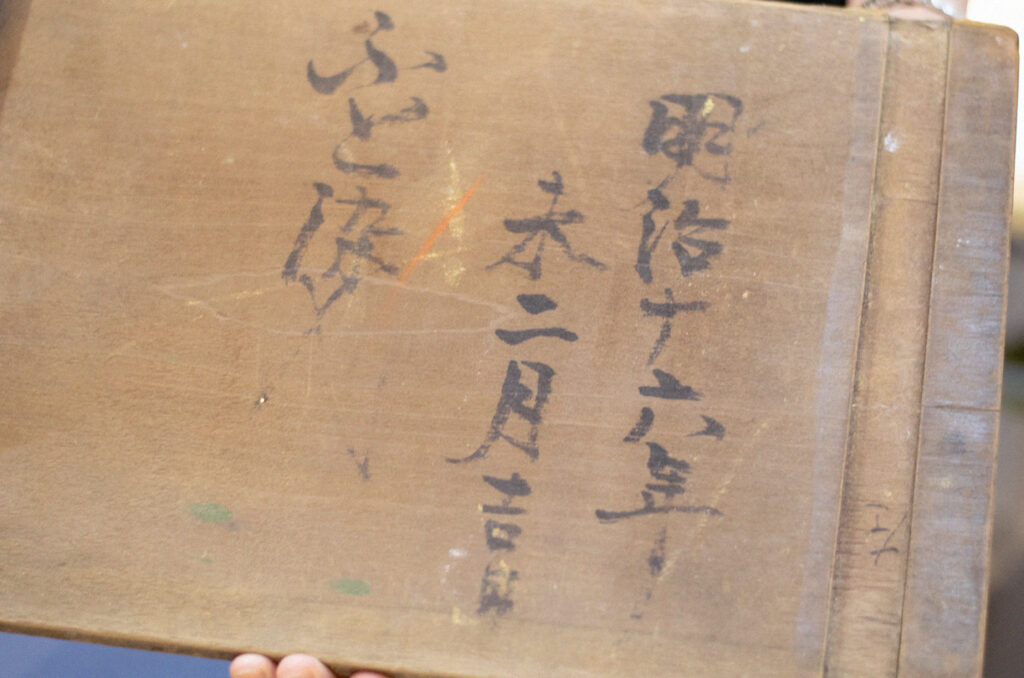 明治十六年
未二月吉日
ふと染